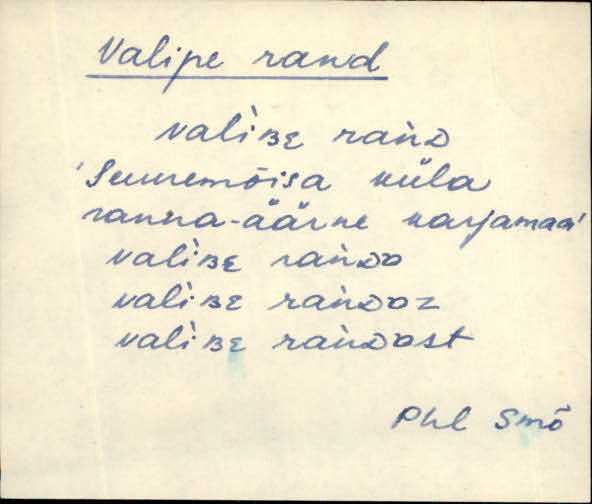 Valipe rand
valiʙᴇ ran̆ᴅ
'Suuremõisa küla
ranna-äärne karjamaa'
valiʙᴇ ran̆ᴅa
valiʙᴇ ran̆ᴅaz
valiʙᴇ ran̆ᴅast
Phl Smõ